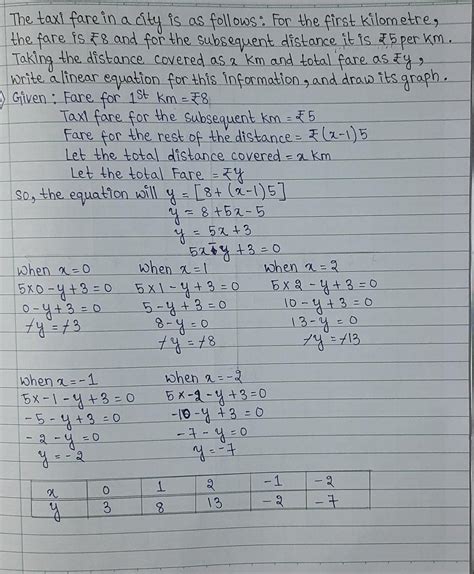 The taxi fare in a city is as follows: For the first Kilometre,
the fare is ₹8 and for the subsequent distance it is ₹5 per km.
Taking the distance covered as x km and total fare as ₹y,
write a linear equation for this information, and draw its graph.
Given : Fare for 1st km = ₹8
Taxi fare for the subsequent km = ₹5
Fare for the rest of the distance = ₹(x-1)5
Let the total distance covered = x km
Let the total Fare = ₹y
so, the equation will y = [8+(x-1)5]
y = 8+5x-5
y = 5x+3
5x-y+3=0
when x=0 when x=1 when x=2
5x0-y+3=0 5x1-y+3=0 5x2-y+3=0
0-y+3=0 5-y+3=0 10-y+3=0
-y=-3 8-y=0 13-y=0
-y=-8 -y=-13
when x=-1 when x=-2
5x-1-y+3=0 5x-2-y+3=0
-5-y+3=0 -10-y+3=0
-2-y=0 -7-y=0
y=-2 y=-7
x 0 1 2 -1 -2
y 3 8 13 -2 -7